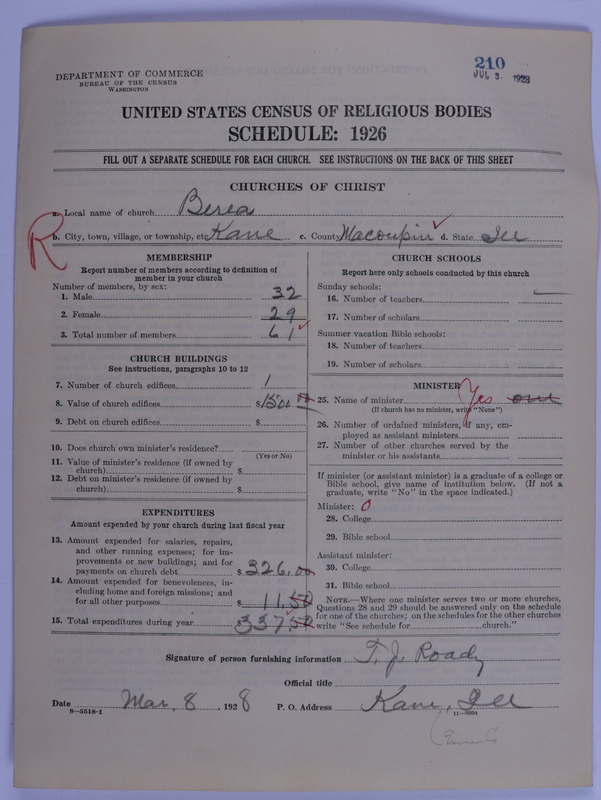 210
JUL 3 1928
DEPARTMENT OF COMMERCE
BUREAU OF THE CENSUS
WASHINGTON
UNITED STATES CENSUS OF RELIGIOUS BODIES
SCHEDULE: 1926
FILL OUT A SEPARATE SCHEDULE FOR EACH CHURCH. SEE INSTRUCTIONS ON THE BACK OF THIS SHEET
CHURCHES OF CHRIST
a. Local name of church Berea
R
b. City, town, village, or township, etc. Kane c. County Macoupin d. State Ill
MEMBERSHIP
Report number of members according to definition of
member in your church
Number of members, by sex:
1. Male 32
2. Female 29
3. Total number of members 61
CHURCH BUILDINGS
See instructions, paragraphs 10 to 12
7. Number of church edifices 1
8. Value of church edifices $1500.00
9. Debt on church edifices $
10. Does church own minister's residence?
(Yes or No)
11. Value of minister's residence (if owned by
church) $
12. Debt on minister's residence (if owned by
church) $
EXPENDITURES
Amount expended by your church during last fiscal year
13. Amount expended for salaries, repairs,
and other running expenses; for im-
provements or new buildings; and for
payments on church debt $326.00
14. Amount expended for benevolences, in-
cluding home and foreign missions; and
for all other purposes $11.50
15. Total expenditures during year $337.50
CHURCH SCHOOLS
Report here only schools conducted by this church
Sunday schools:
16. Number of teachers
17. Number of scholars
Summer vacation Bible schools:
18. Number of teachers
19. Number of scholars
MINISTER
25. Name of minister Yes one
(If church has no minister, write "None")
26. Number of ordained ministers, if any, em-
ployed as assistant ministers
27. Number of other churches served by the
minister or his assistants
If minister (or assistant minister) is a graduate of a college or
Bible school, give name of institution below. (If not a
graduate, write "No" in the space indicated.)
Minister: 0
28. College
29. Bible school
Assistant minister:
30. College
31. Bible school
NOTE.—Where one minister serves two or more churches,
Questions 28 and 29 should be answered only on the schedule
for one of the churches; on the schedules for the other churches
write "See schedule for church."
Signature of person furnishing information T. J. Roady
Official title
Date Mar, 8, 1928 P. O. Address Kane, Ill
8—5518-1